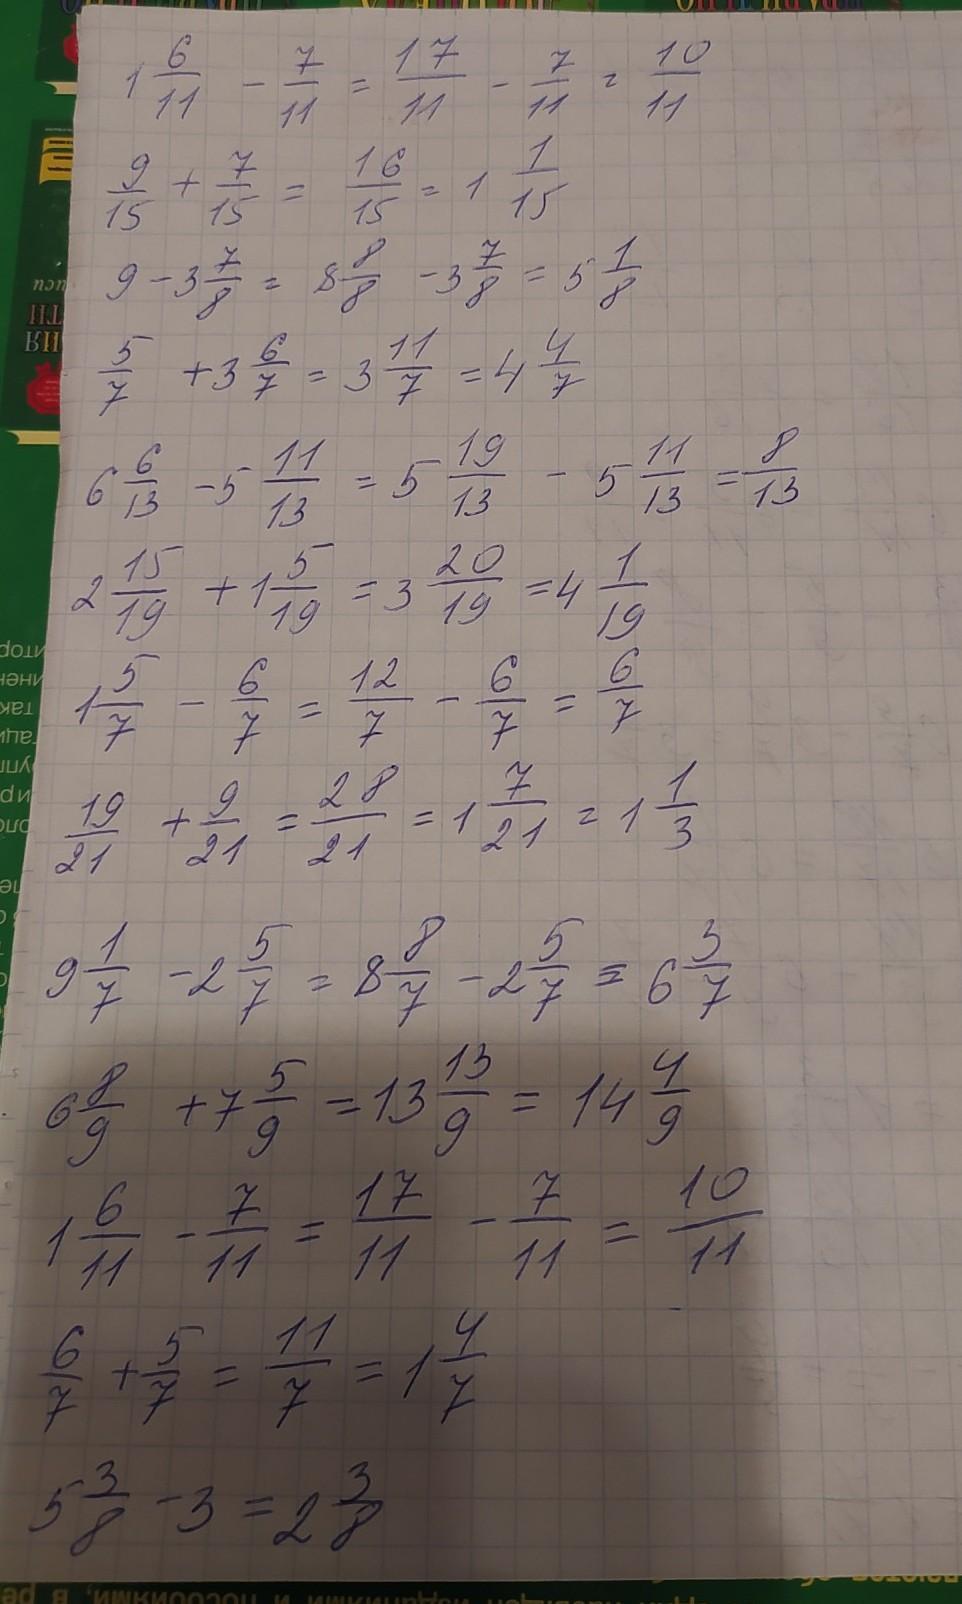 1 6/11 - 7/11 = 17/11 - 7/11 = 10/11
9/15 + 7/15 = 16/15 = 1 1/15
9 - 3 7/8 = 8 8/8 - 3 7/8 = 5 1/8
5/7 + 3 6/7 = 3 11/7 = 4 4/7
6 6/13 - 5 11/13 = 5 19/13 - 5 11/13 = 8/13
2 15/19 + 1 5/19 = 3 20/19 = 4 1/19
1 5/7 - 6/7 = 12/7 - 6/7 = 6/7
19/21 + 9/21 = 28/21 = 1 7/21 = 1 1/3
9 1/7 - 2 5/7 = 8 8/7 - 2 5/7 = 6 3/7
6 8/9 + 7 5/9 = 13 13/9 = 14 4/9
1 6/11 - 7/11 = 17/11 - 7/11 = 10/11
6/7 + 5/7 = 11/7 = 1 4/7
5 3/8 - 3 = 2 3/8